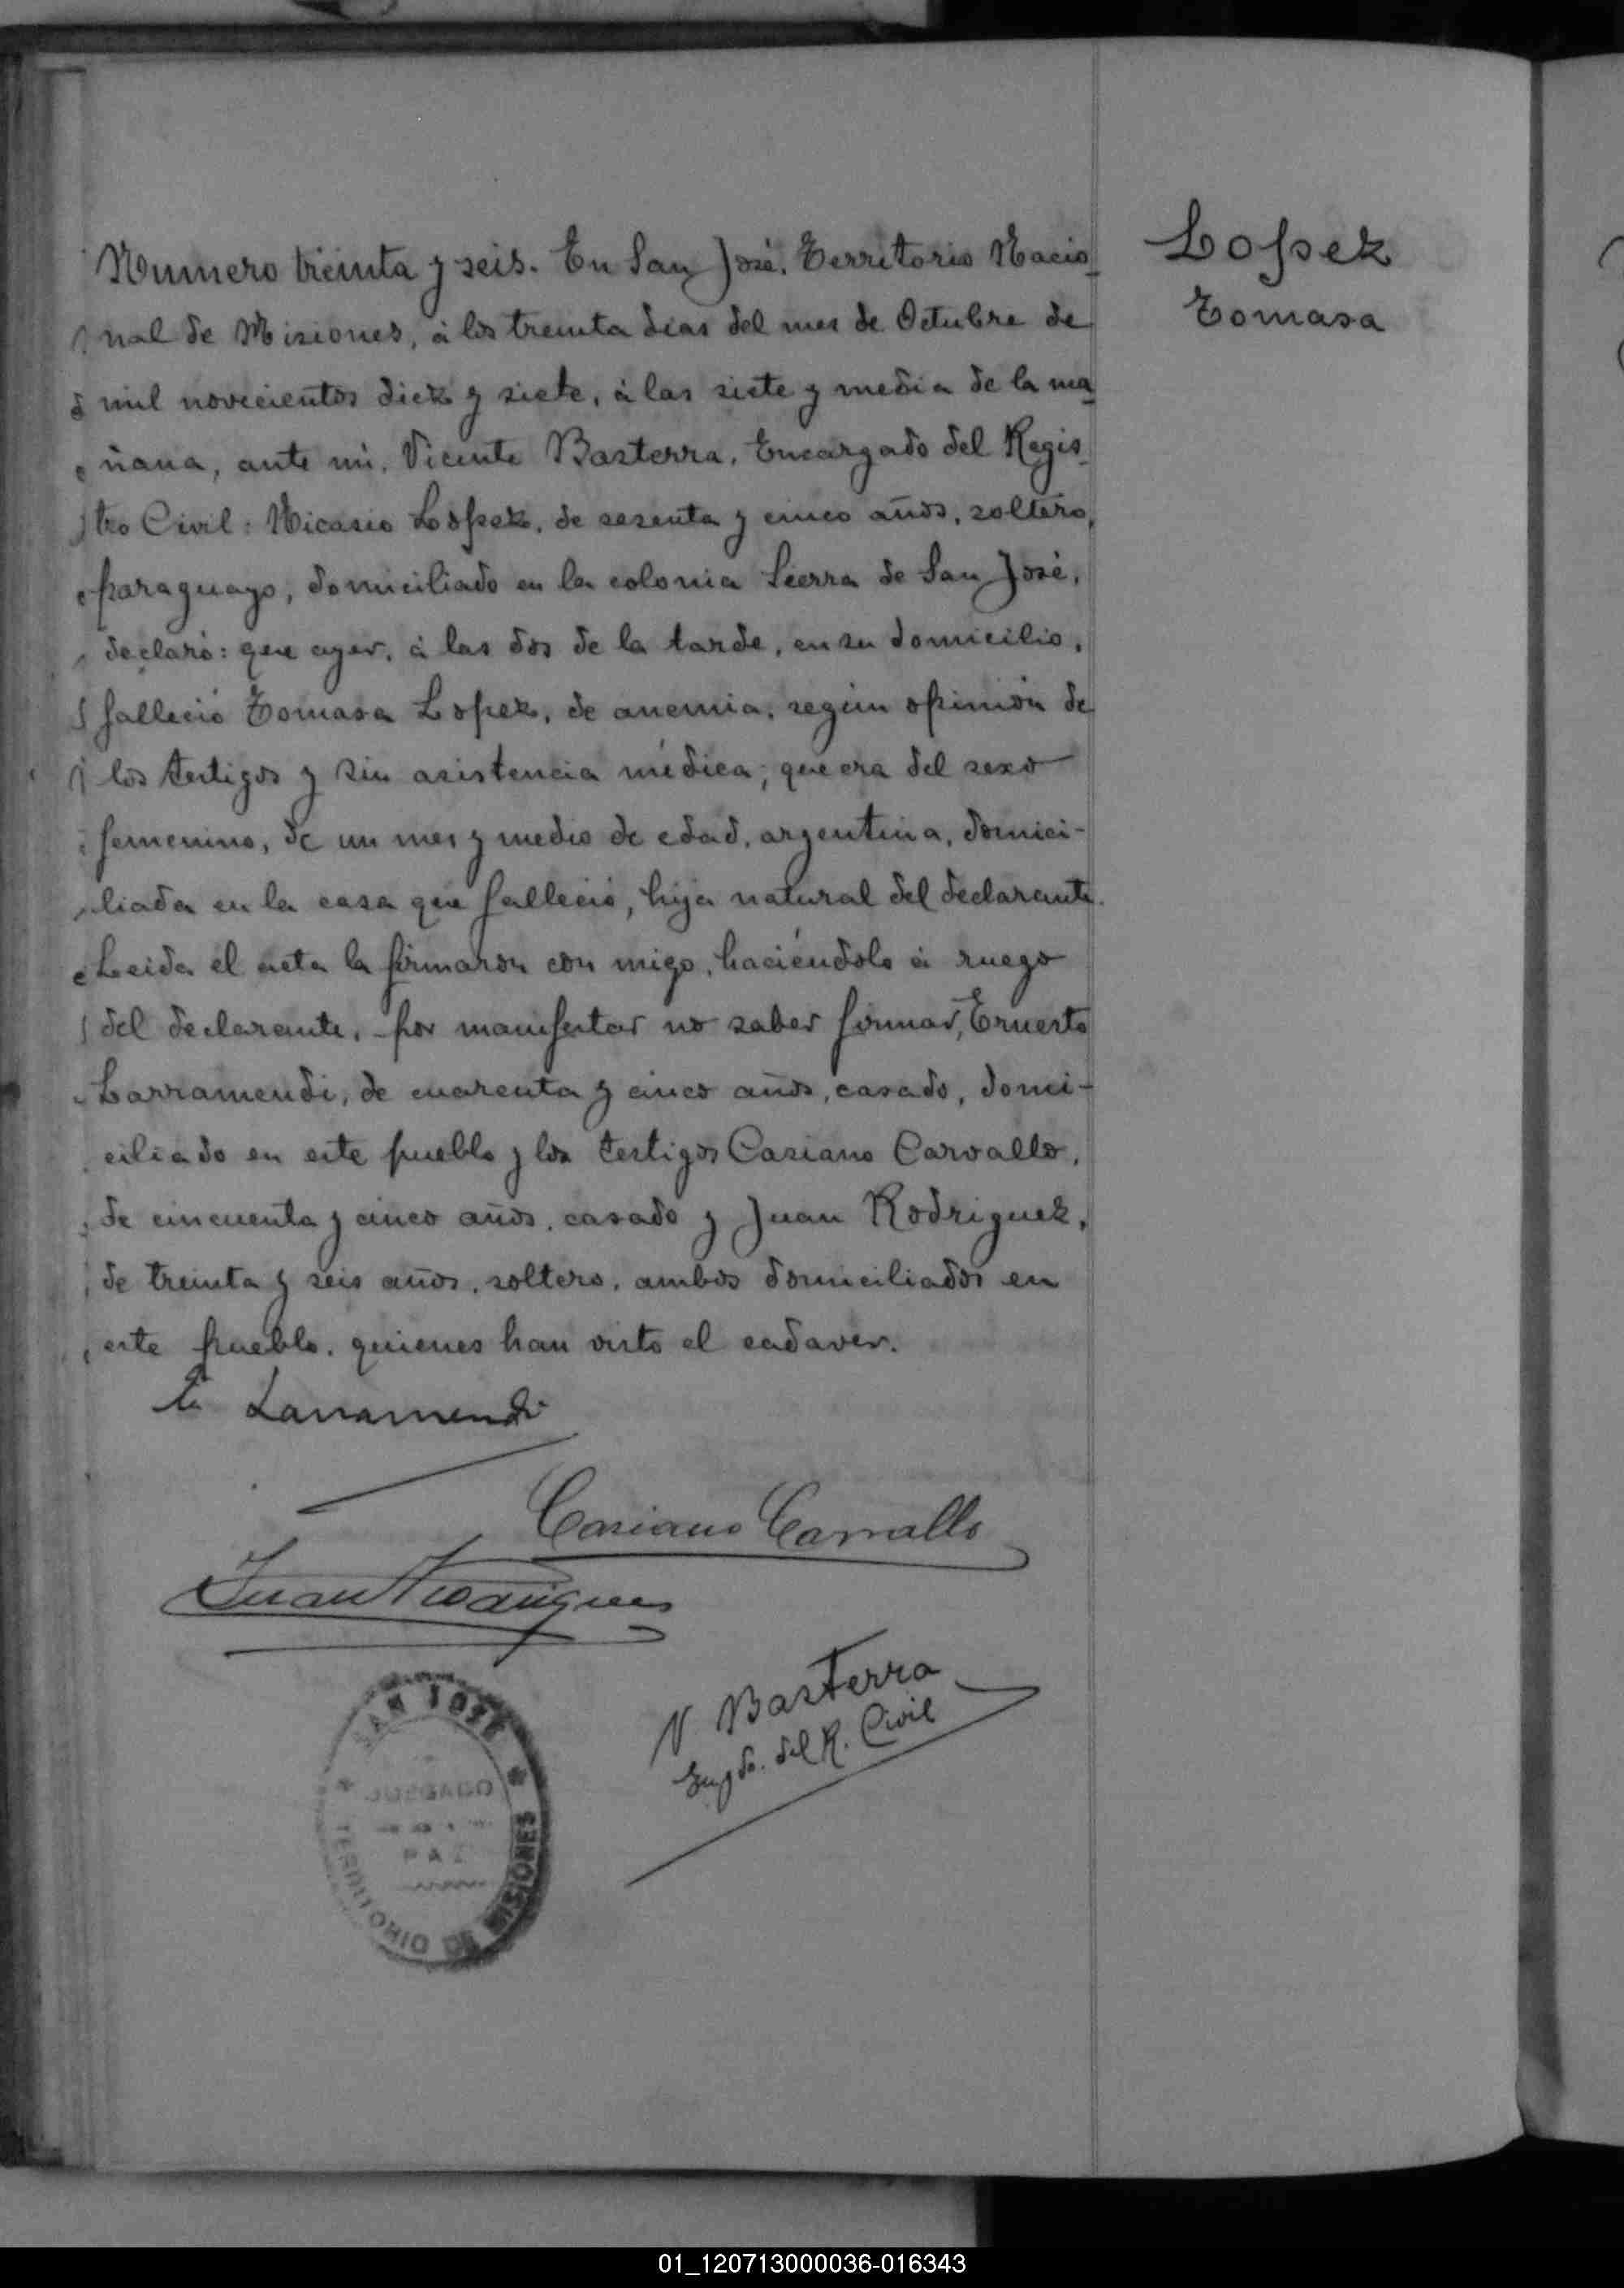 Lopez
Tomasa
Numero treinta y seis. En San José, Territorio Nacio_
nal de Misiones, á los treinta dias del mes de Octubre de
mil novecientos diez y siete, á las siete y media de la ma_
ñana, ante mi, Vicente Basterra, Encargado del Regis_
tro Civil: Nicasio Lopez, de sesenta y cinco años, soltero,
paraguayo, domiciliado en la colonia Sierra de San José,
declaró: que ayer, á las dos de la tarde, en su domicilio,
falleció Tomasa Lopez, de anemia, según opinión de
los testigos y sin asistencia médica; que era del sexo
femenino, de un mes y medio de edad, argentina, domici-
liada en la casa que falleció, hija natural del declarante.
Leida el acta la firmaron con migo, haciéndolo á ruego
del declarante, por manifestar no saber firmar, Ernesto
Larramendi, de cuarenta y cinco años, casado, domi-
ciliado en este pueblo y los testigos Casiano Carvallo,
de cincuenta y cinco años, casado y Juan Rodriguez,
de treinta y seis años, soltero, ambos domiciliados en
este pueblo, quienes han visto el cadaver.
Larramendi
Casiano Carvallo
Juan Rodrigues
V Basterra
Engdo. del R. Civil
SAN JOSÉ
JUZGADO
PAZ
TERRITORIO DE MISIONES
01_120713000036-016343